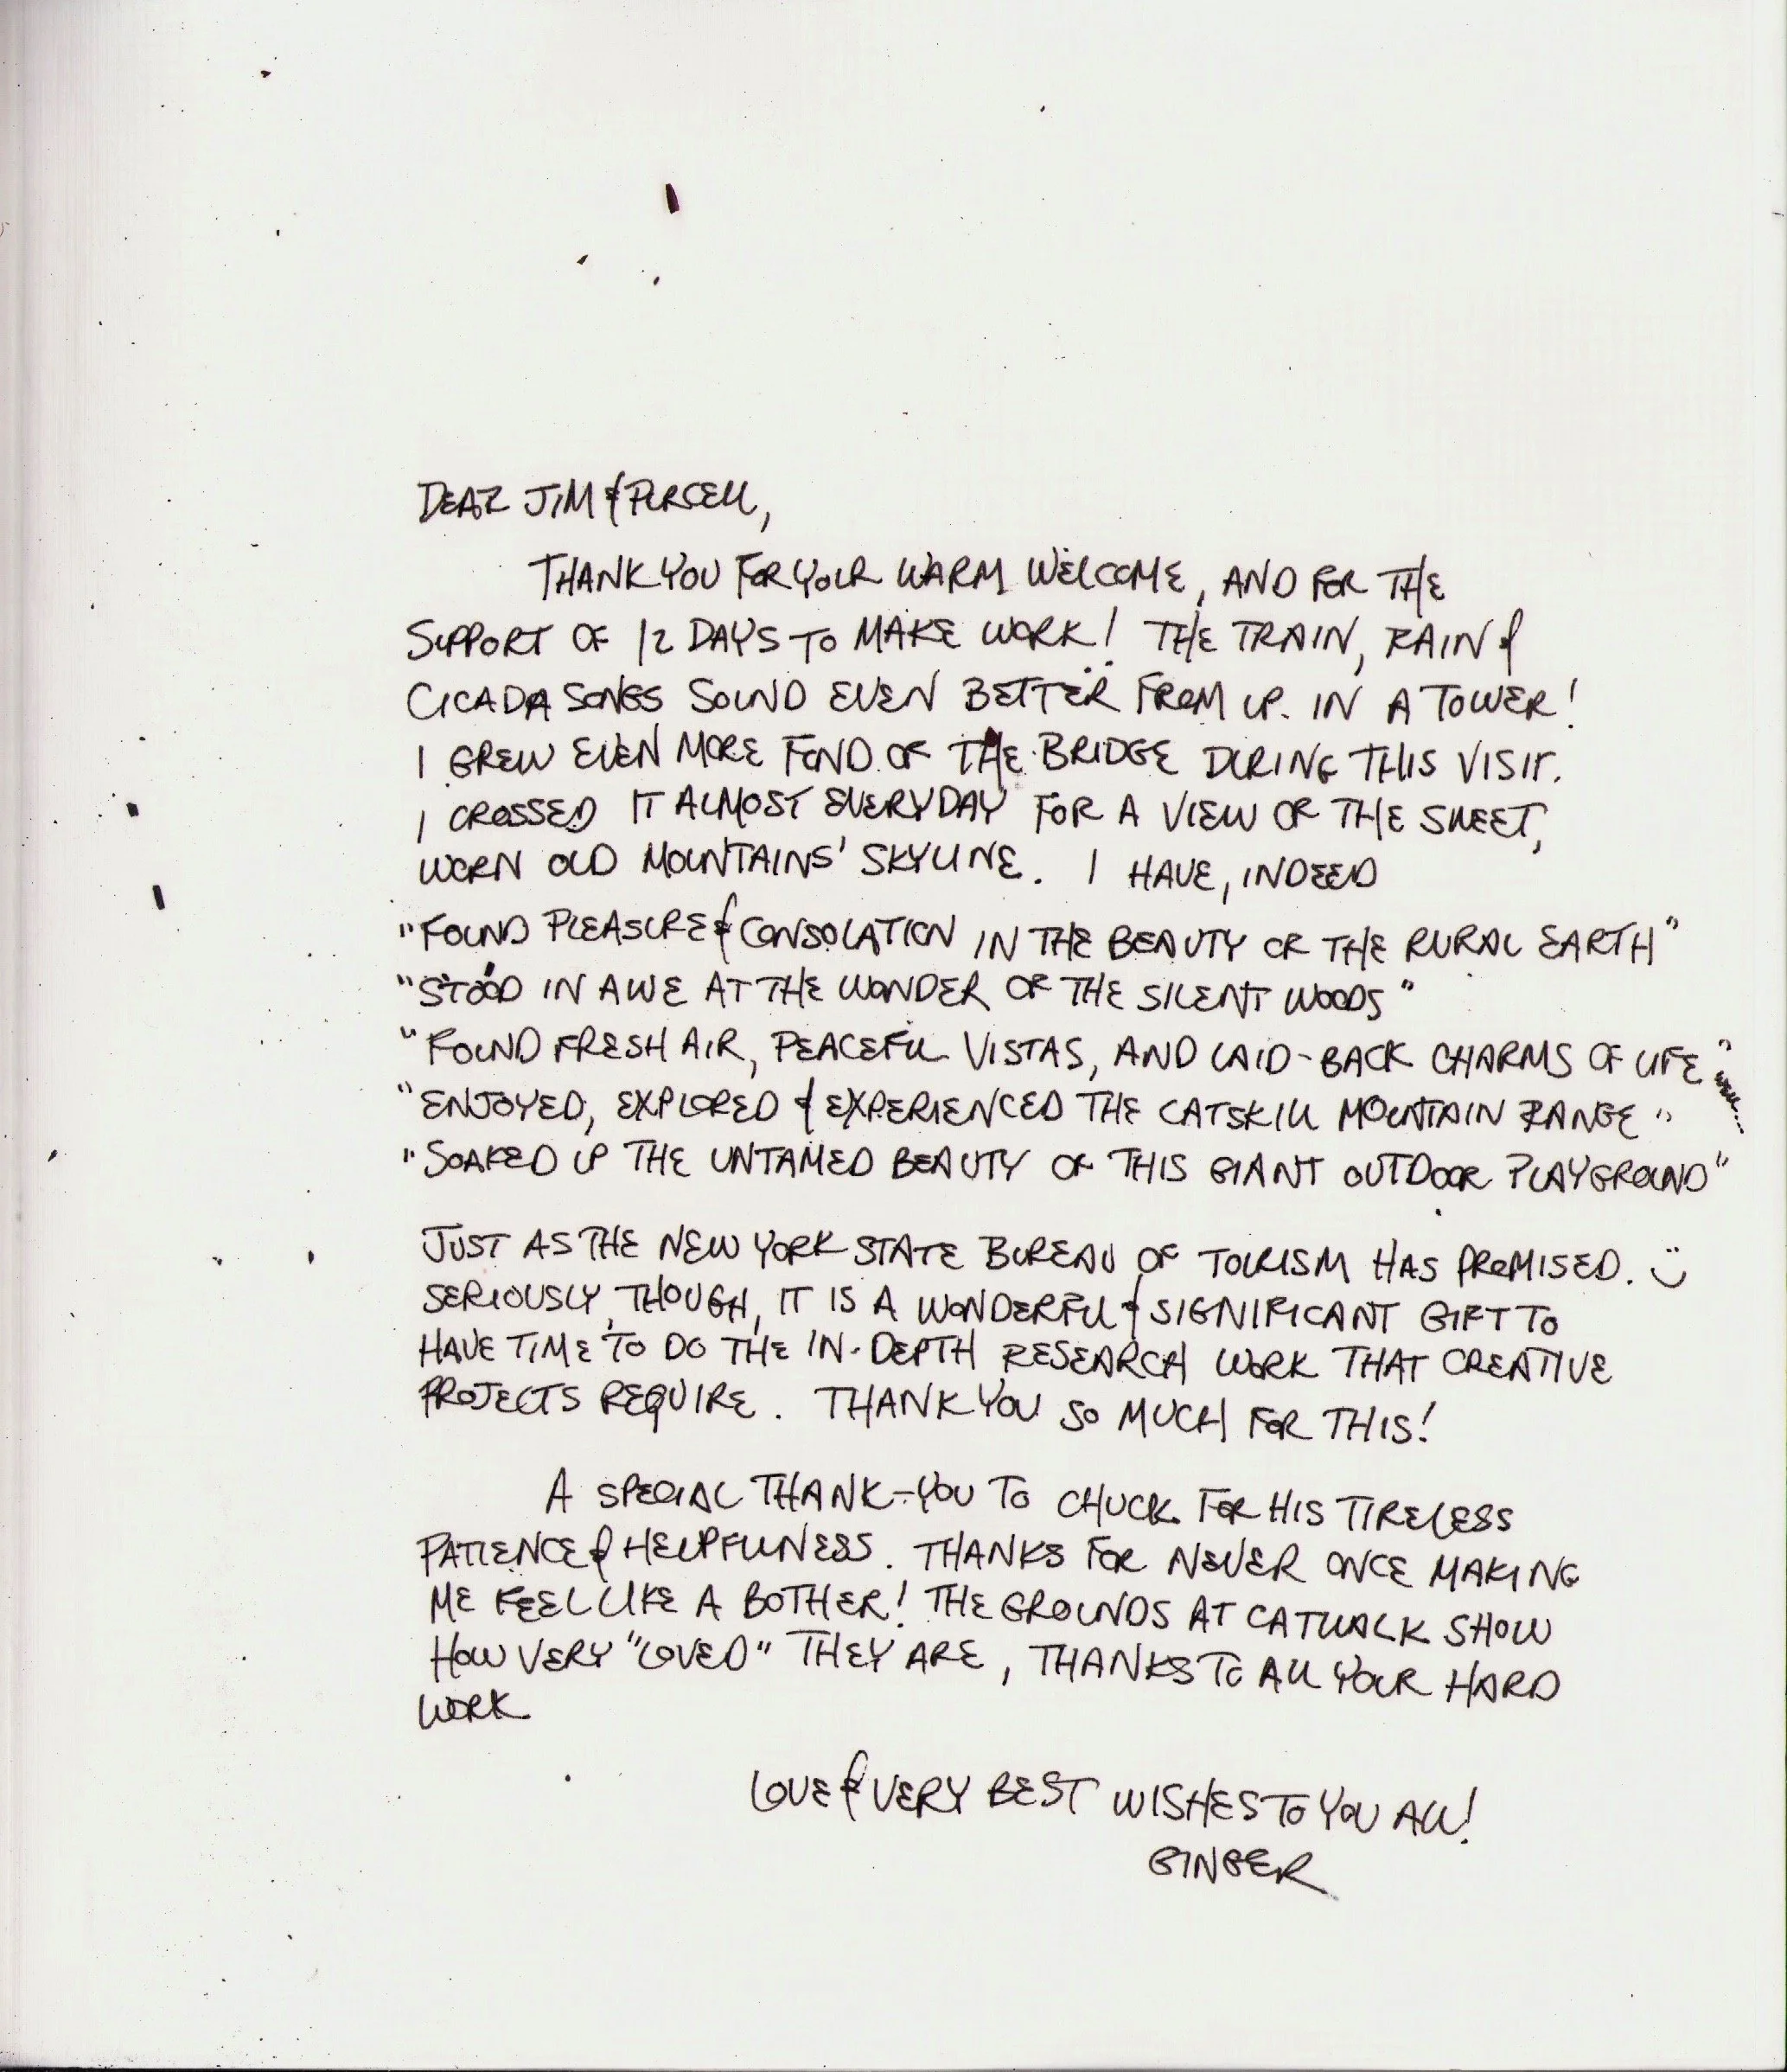 DEAR JIM & PURCELL,
THANK YOU FOR YOUR WARM WELCOME, AND FOR THE
SUPPORT OF 12 DAYS TO MAKE WORK! THE TRAIN, RAIN &
CICADA SONGS SOUND EVEN BETTER FROM UP IN A TOWER!
I GREW EVEN MORE FOND OF THE BRIDGE DURING THIS VISIT.
I CROSSED IT ALMOST EVERYDAY FOR A VIEW OF THE SWEET,
WORN OLD MOUNTAINS' SKYLINE. I HAVE, INDEED
"FOUND PLEASURE & CONSOLATION IN THE BEAUTY OF THE RURAL EARTH"
"STOOD IN AWE AT THE WONDER OF THE SILENT WOODS"
"FOUND FRESH AIR, PEACEFUL VISTAS, AND LAID-BACK CHARMS OF LIFE"
"ENJOYED, EXPLORED & EXPERIENCED THE CATSKILL MOUNTAIN RANGE"
"SOAKED UP THE UNTAMED BEAUTY OF THIS GIANT OUTDOOR PLAYGROUND"
JUST AS THE NEW YORK STATE BUREAU OF TOURISM HAS PROMISED. :)
SERIOUSLY, THOUGH, IT IS A WONDERFUL & SIGNIFICANT GIFT TO
HAVE TIME TO DO THE IN-DEPTH RESEARCH WORK THAT CREATIVE
PROJECTS REQUIRE. THANK YOU SO MUCH FOR THIS!
A SPECIAL THANK-YOU TO CHUCK FOR HIS TIRELESS
PATIENCE & HELPFULNESS. THANKS FOR NEVER ONCE MAKING
ME FEEL LIKE A BOTHER! THE GROUNDS AT CATWALK SHOW
HOW VERY "LOVED" THEY ARE, THANKS TO ALL YOUR HARD
WORK
LOVE & VERY BEST WISHES TO YOU ALL!
GINGER